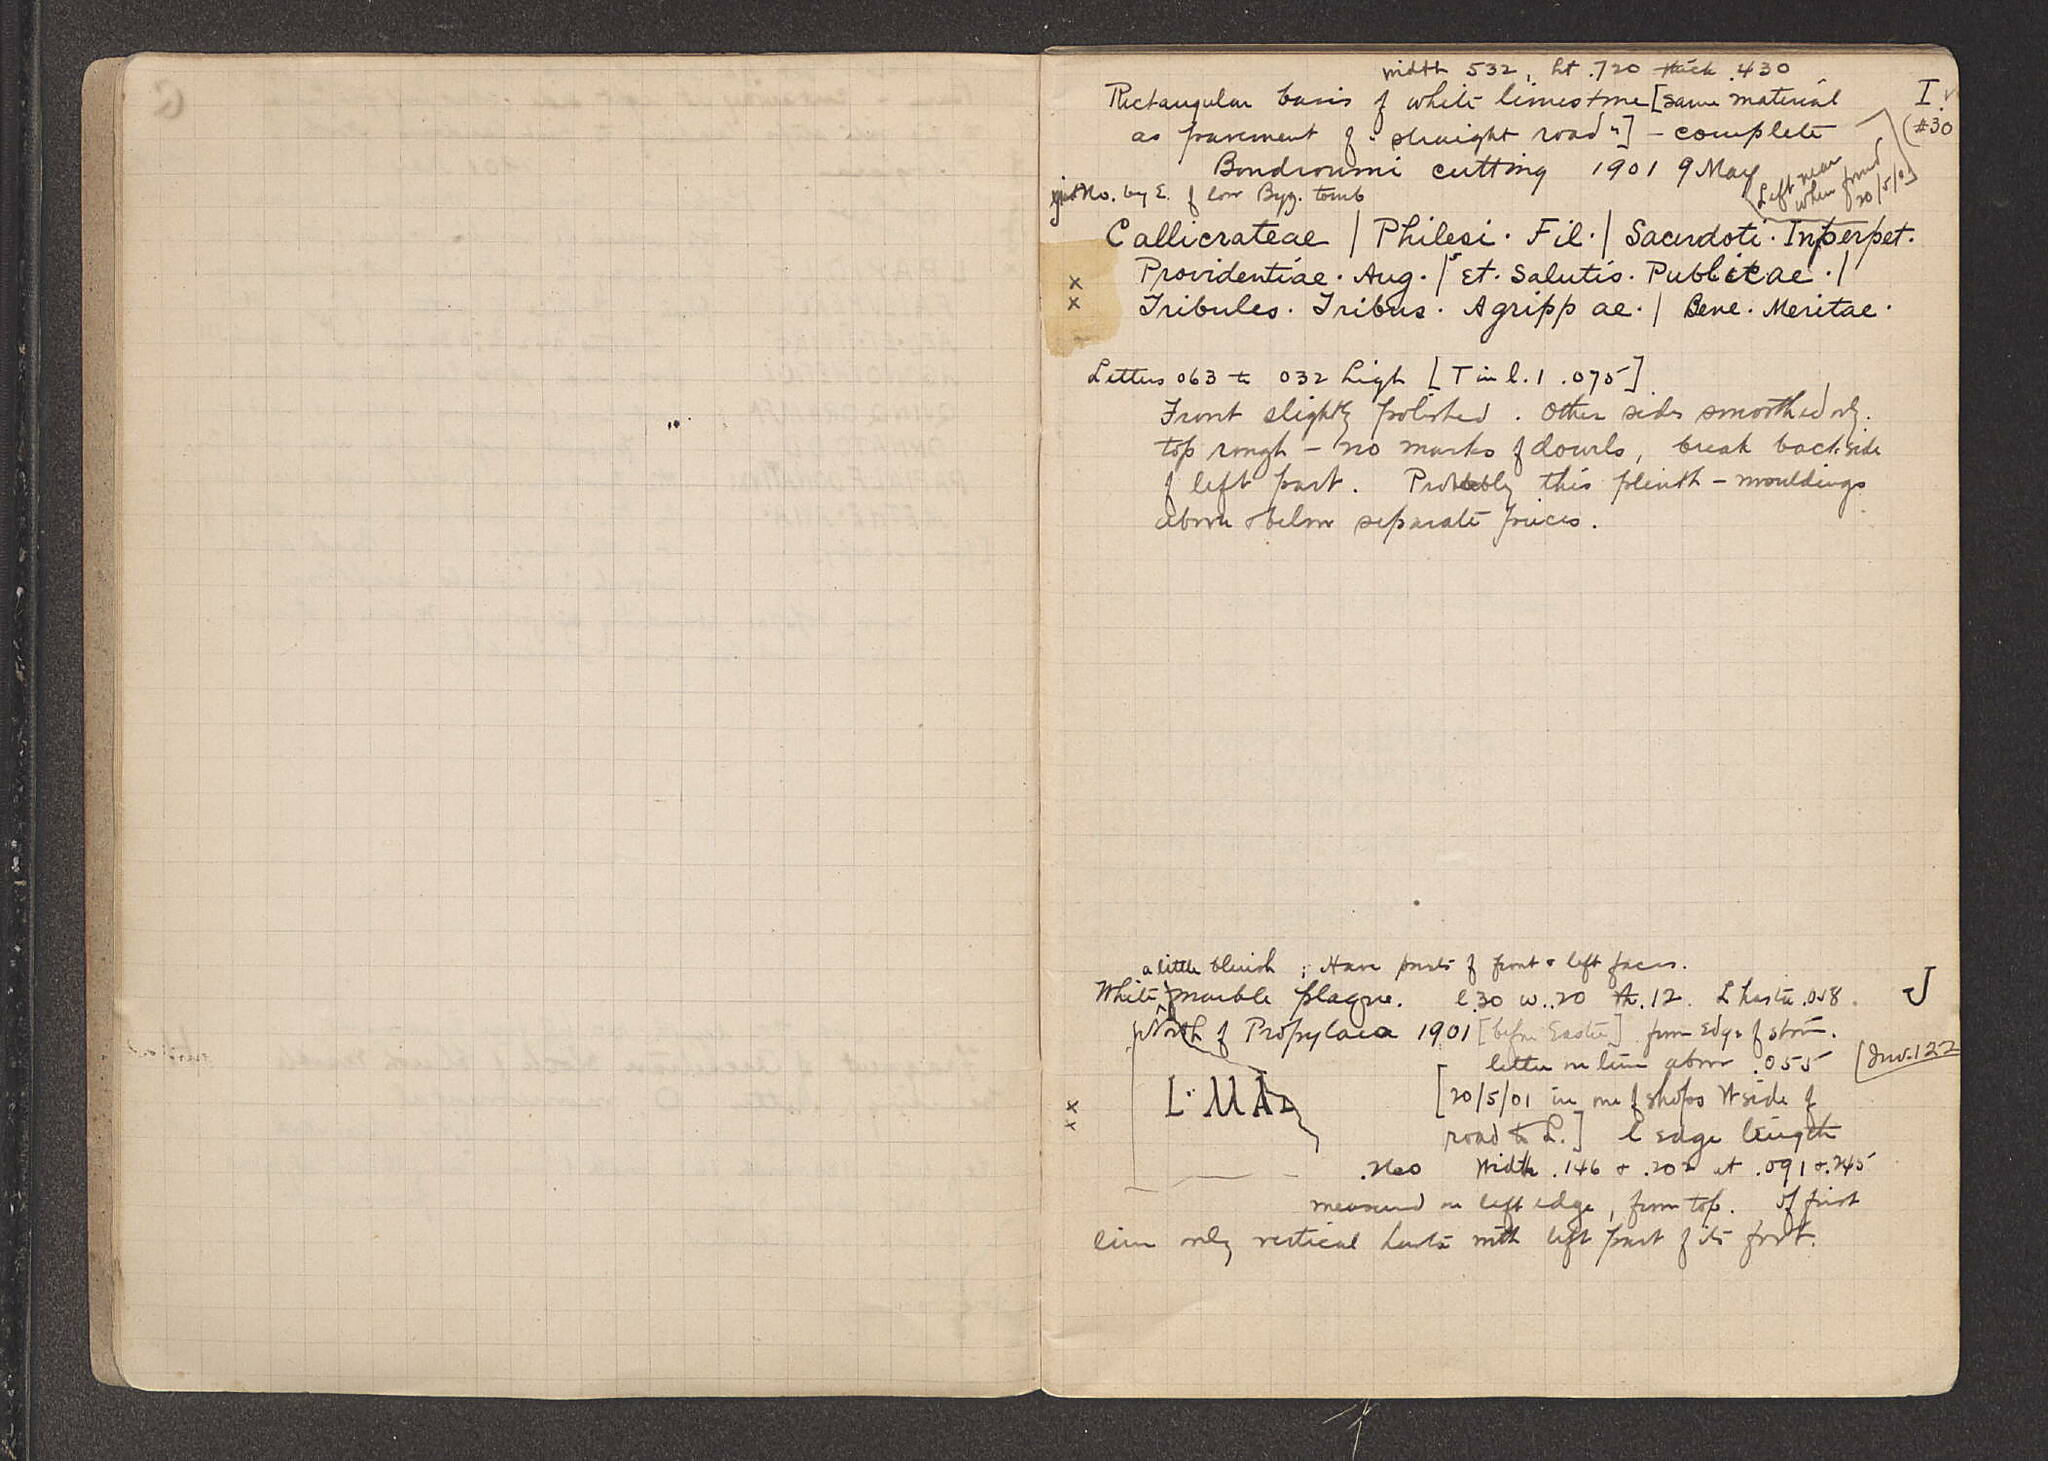 width 532, ht .720 thick .430
Rectangular basis of white limestone [same material
as pavement of "straight road"] – complete
I.
(#30
Boudroumi cutting 1901 9 May
[Left near
when found
20/5/01]
just No. by E. of low Byz. tomb
Callicrateae / Philesi · Fil · / Sacerdoti · In perpet.
Providentiae · Aug · /5 Et · Salutis · Publicae · /
Tribules · Tribus · Agripp ae · / Bene · Meritae ·
x
x
Letters 063 to 032 high [T in l. 1 .075]
Front slightly polished. Other sides smoothed only.
top rough – no marks of dowels, break back side
of left part. Probably this plinth – mouldings
above & below separate pieces.
a little bluish ; Have parts of front & left faces.
White marble plaque. l .30 w. .20 th .12. L hasta .058.
J
North of Propylaea 1901 [before Easter] from edge of stone.
letter on line above .055
(Inv. 122
L · MA
[20/5/01 in one of shops W side of
road to L.] l edge length
x
x
.260 Width .146 & .202 at .091 & .245
measured on left edge, from top. Of first
line only vertical hasta with left part of its foot.